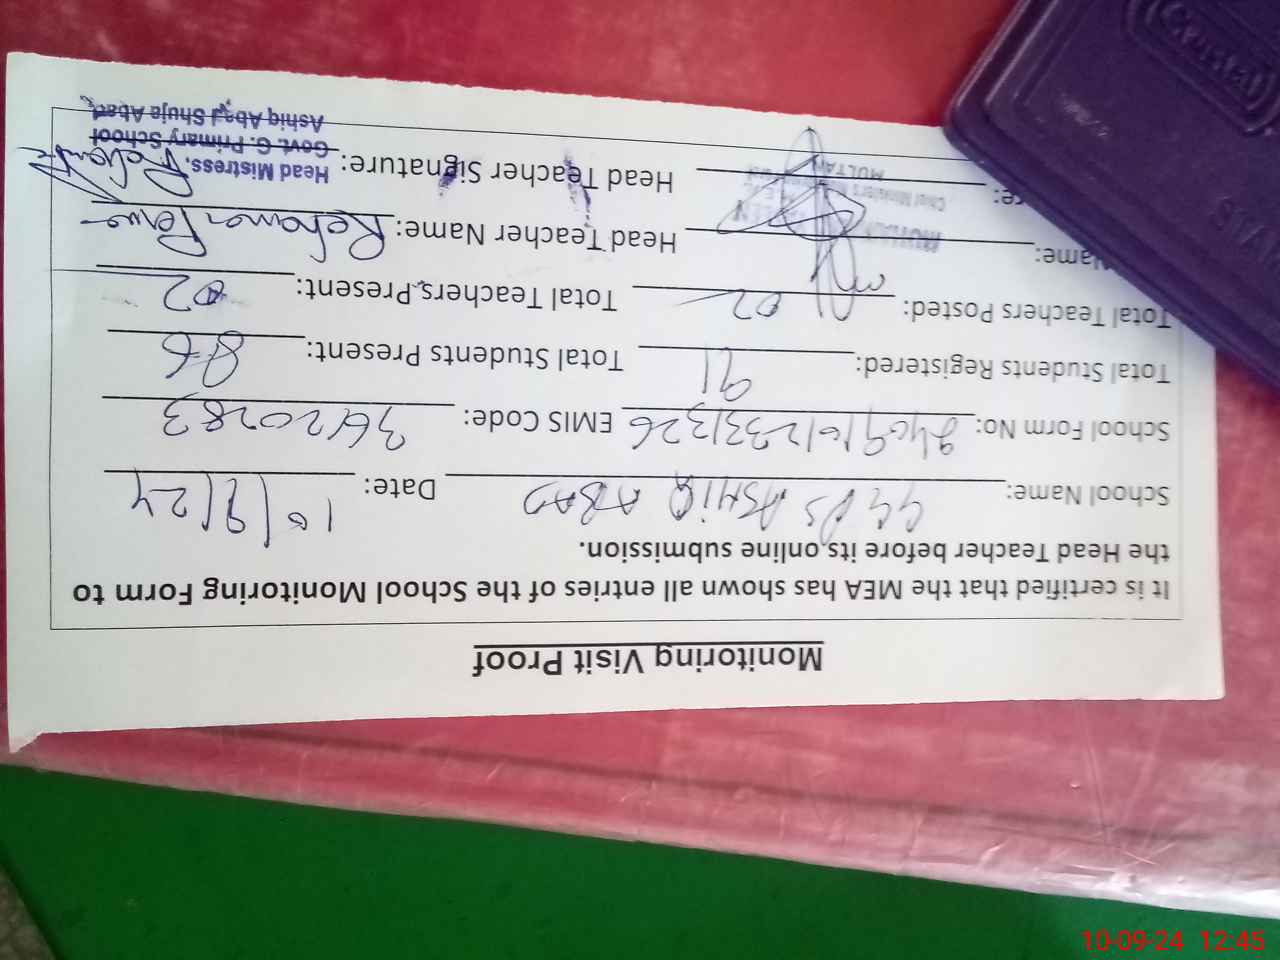 Monitoring Visit Proof
It is certified that the MEA has shown all entries of the School Monitoring Form to
the Head Teacher before its online submission.
School Name: GGPS ASHiQ ABAD Date: 10/9/24
School Form No: EMIS Code: 36120283
Total Students Registered: 91 Total Students Present: 86
Total Teachers Posted: 02 Total Teachers Present: 02
Name: Head Teacher Name: Rehana
Head Teacher Signature: Head Mistress,
Govt. G. Primary School
Ashiq Abad Shuja Abad
MULTAN
Crystal
10-09-24 12:45